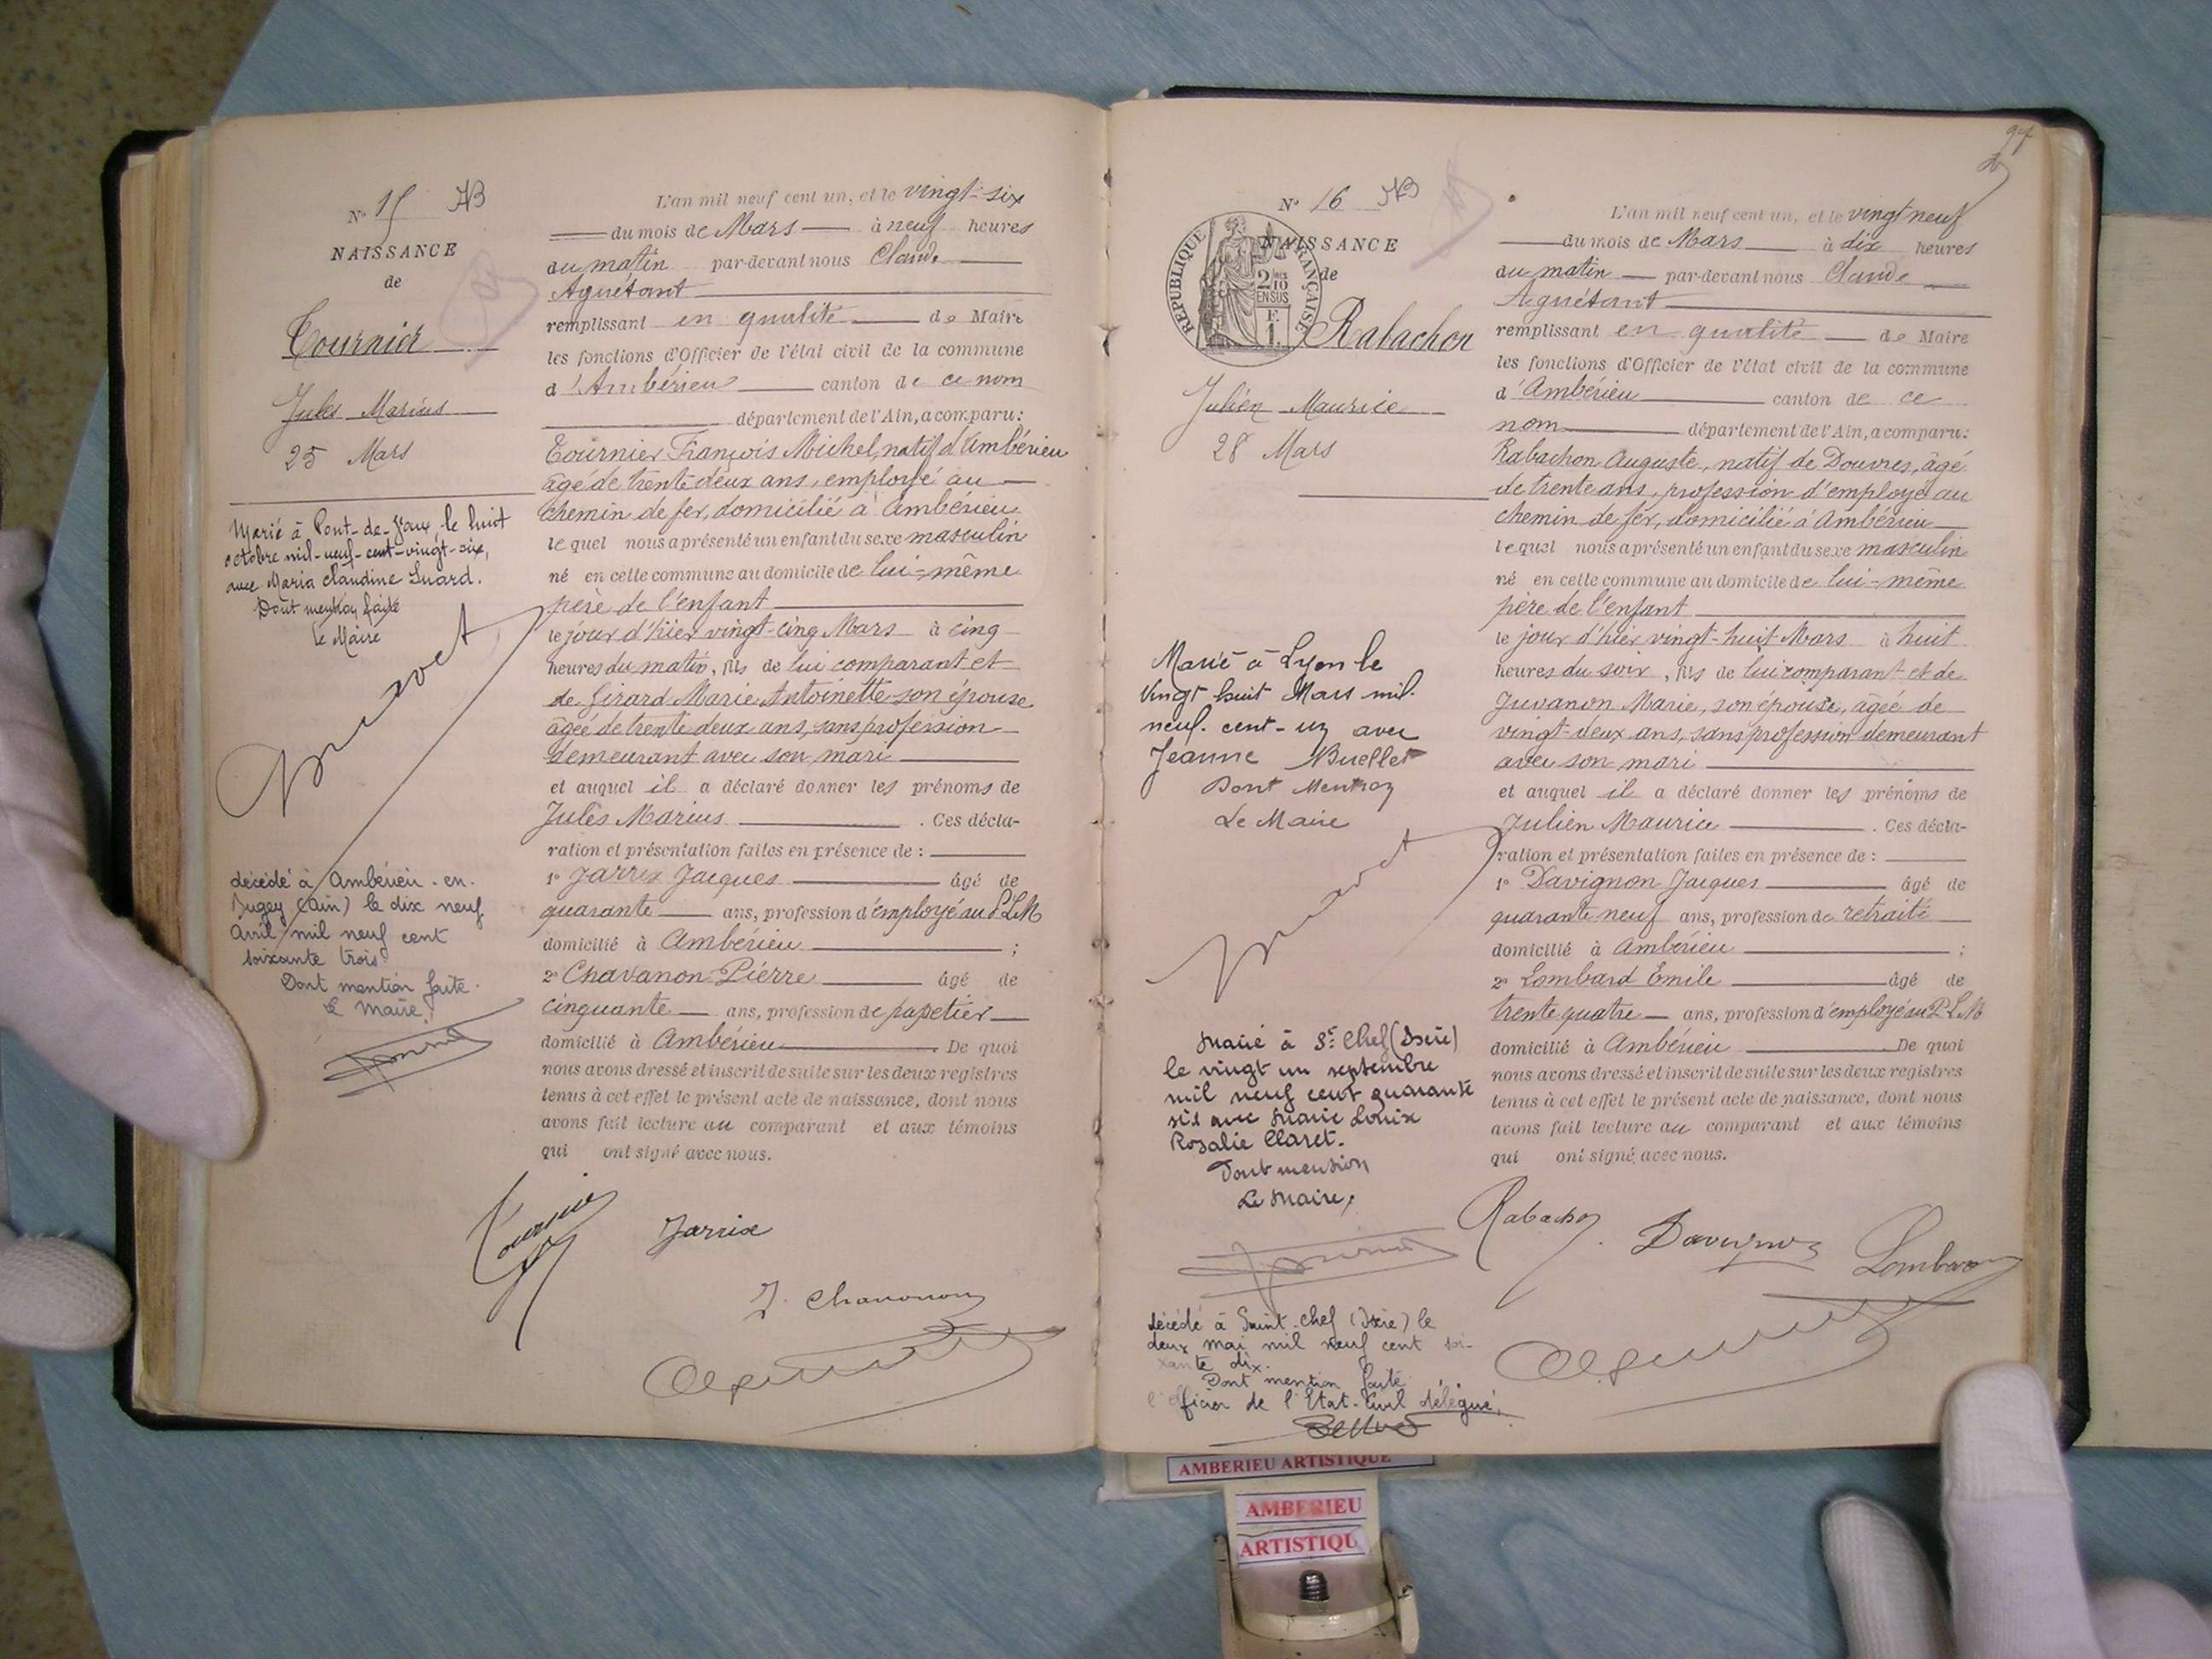 N° 15 AB
NAISSANCE
de
Tournier
Jules Marius
25 Mars
Marié à Pont-de-Vaux le huit
octobre mil-neuf-cent-vingt-six,
avec Maria Claudine Luard.
Dont mention faite
Le Maire
décédé à Ambérieu-en-
Bugey (Ain) le dix neuf
Avril mil neuf cent
soixante trois
Dont mention faite.
Le Maire,
L'an mil neuf cent un, et le vingt-six
du mois de Mars à neuf heures
du matin par-devant nous Claude
Aguétant
remplissant en qualité de Maire
les fonctions d'Officier de l'état civil de la commune
d'Ambérieu canton de ce nom
département de l'Ain, a comparu:
Tournier François Michel, natif d'Ambérieu
âgé de trente deux ans, employé au
chemin de fer, domicilié à Ambérieu
lequel nous a présenté un enfant du sexe masculin
né en cette commune au domicile de lui-même
père de l'enfant
le jour d'hier vingt-cinq Mars à cinq
heures du matin, fils de lui comparant et
de Girard Marie Antoinette son épouse
âgée de trente deux ans, sans profession
demeurant avec son mari
et auquel il a déclaré donner les prénoms de
Jules Marius . Ces décla-
ration et présentation faites en présence de :
1° Jarrix Jacques âgé de
quarante ans, profession d'employé au P.L.M
domicilié à Ambérieu ;
2° Chavanon Pierre âgé de
cinquante ans, profession de papetier
domicilié à Ambérieu . De quoi
nous avons dressé et inscrit de suite sur les deux registres
tenus à cet effet le présent acte de naissance, dont nous
avons fait lecture au comparant et aux témoins
qui ont signé avec nous.
Tournier
Jarrix
J. Chavanon
N° 16 AB
NAISSANCE
de
RÉPUBLIQUE FRANÇAISE
2/10 EN SUS
F. 1.
Rabachon
Julien Maurice
28 Mars
Marié à Lyon le
vingt huit Mars mil.
neuf. cent-un avec
Jeanne Buellet
Dont Mention
Le Maire
Marié à St Chef (Isère)
le vingt un septembre
mil neuf cent quarante
six avec Marie Louise
Rosalie Claret.
Dont mention
Le Maire,
décédé à Saint-Chef (Isère) le
deux mai mil neuf cent soi-
xante dix.
Dont mention faite
l'officier de l'Etat-Civil délégué,
97
L'an mil neuf cent un, et le vingt neuf
du mois de Mars à dix heures
du matin par-devant nous Claude
Aguétant
remplissant en qualité de Maire
les fonctions d'Officier de l'état civil de la commune
d'Ambérieu canton de ce
nom département de l'Ain, a comparu:
Rabachon Auguste, natif de Douvres, âgé
de trente ans, profession d'employé au
chemin de fer, domicilié à Ambérieu
lequel nous a présenté un enfant du sexe masculin
né en cette commune au domicile de lui-même
père de l'enfant
le jour d'hier vingt-huit Mars à huit
heures du soir, fils de lui comparant et de
Juvanon Marie, son épouse, âgée de
vingt-deux ans, sans profession demeurant
avec son mari
et auquel il a déclaré donner les prénoms de
Julien Maurice . Ces décla-
ration et présentation faites en présence de :
1° Davignon Jacques âgé de
quarante neuf ans, profession de retraité
domicilié à Ambérieu ;
2° Lombard Emile âgé de
trente quatre ans, profession d'employé au P.L.M
domicilié à Ambérieu . De quoi
nous avons dressé et inscrit de suite sur les deux registres
tenus à cet effet le présent acte de naissance, dont nous
avons fait lecture au comparant et aux témoins
qui ont signé avec nous.
Rabachon
Davignon
Lombard
AMBERIEU ARTISTIQUE
AMBERIEU
ARTISTIQU